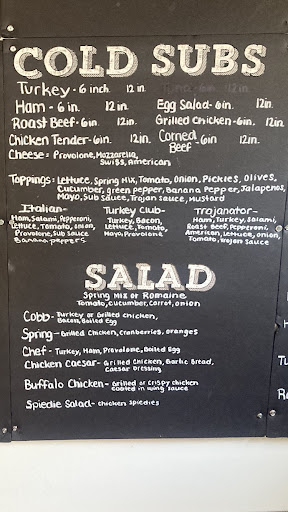 COLD SUBS
Turkey - 6 inch 12 in. Tuna - 6in. 12in.
Ham - 6 in. 12 in. Egg Salad - 6in. 12in.
Roast Beef - 6in. 12in. Grilled Chicken - 6in. 12in.
Chicken Tender - 6in. 12in. Corned Beef 6in 12in.
Cheese: Provolone, Mozzarella,
Swiss, American
Toppings: Lettuce, Spring Mix, Tomato, Onion, Pickles, Olives,
Cucumber, green pepper, Banana Pepper, Jalapenos,
Mayo, Sub Sauce, Trojan Sauce, Mustard
Italian-
Ham, Salami, Pepperoni,
Lettuce, Tomato, Onion,
Provolone, Sub Sauce
Banana peppers
Turkey Club-
Turkey, Bacon,
Lettuce, Tomato,
Mayo, Provolone
Trojanator-
Ham, Turkey, Salami,
Roast Beef, Pepperoni,
American, Lettuce, Onion,
Tomato, Trojan Sauce
SALAD
Spring Mix or Romaine
Tomato, Cucumber, Carrot, Onion
Cobb - Turkey or Grilled Chicken,
Bacon, Boiled Egg
Spring - Grilled Chicken, Cranberries, Oranges
Chef - Turkey, Ham, Provolone, Boiled Egg
Chicken Caesar - Grilled Chicken, Garlic Bread,
Caesar Dressing
Buffalo Chicken - Grilled or Crispy chicken
coated in wing sauce
Spiedie Salad - Chicken Spiedies